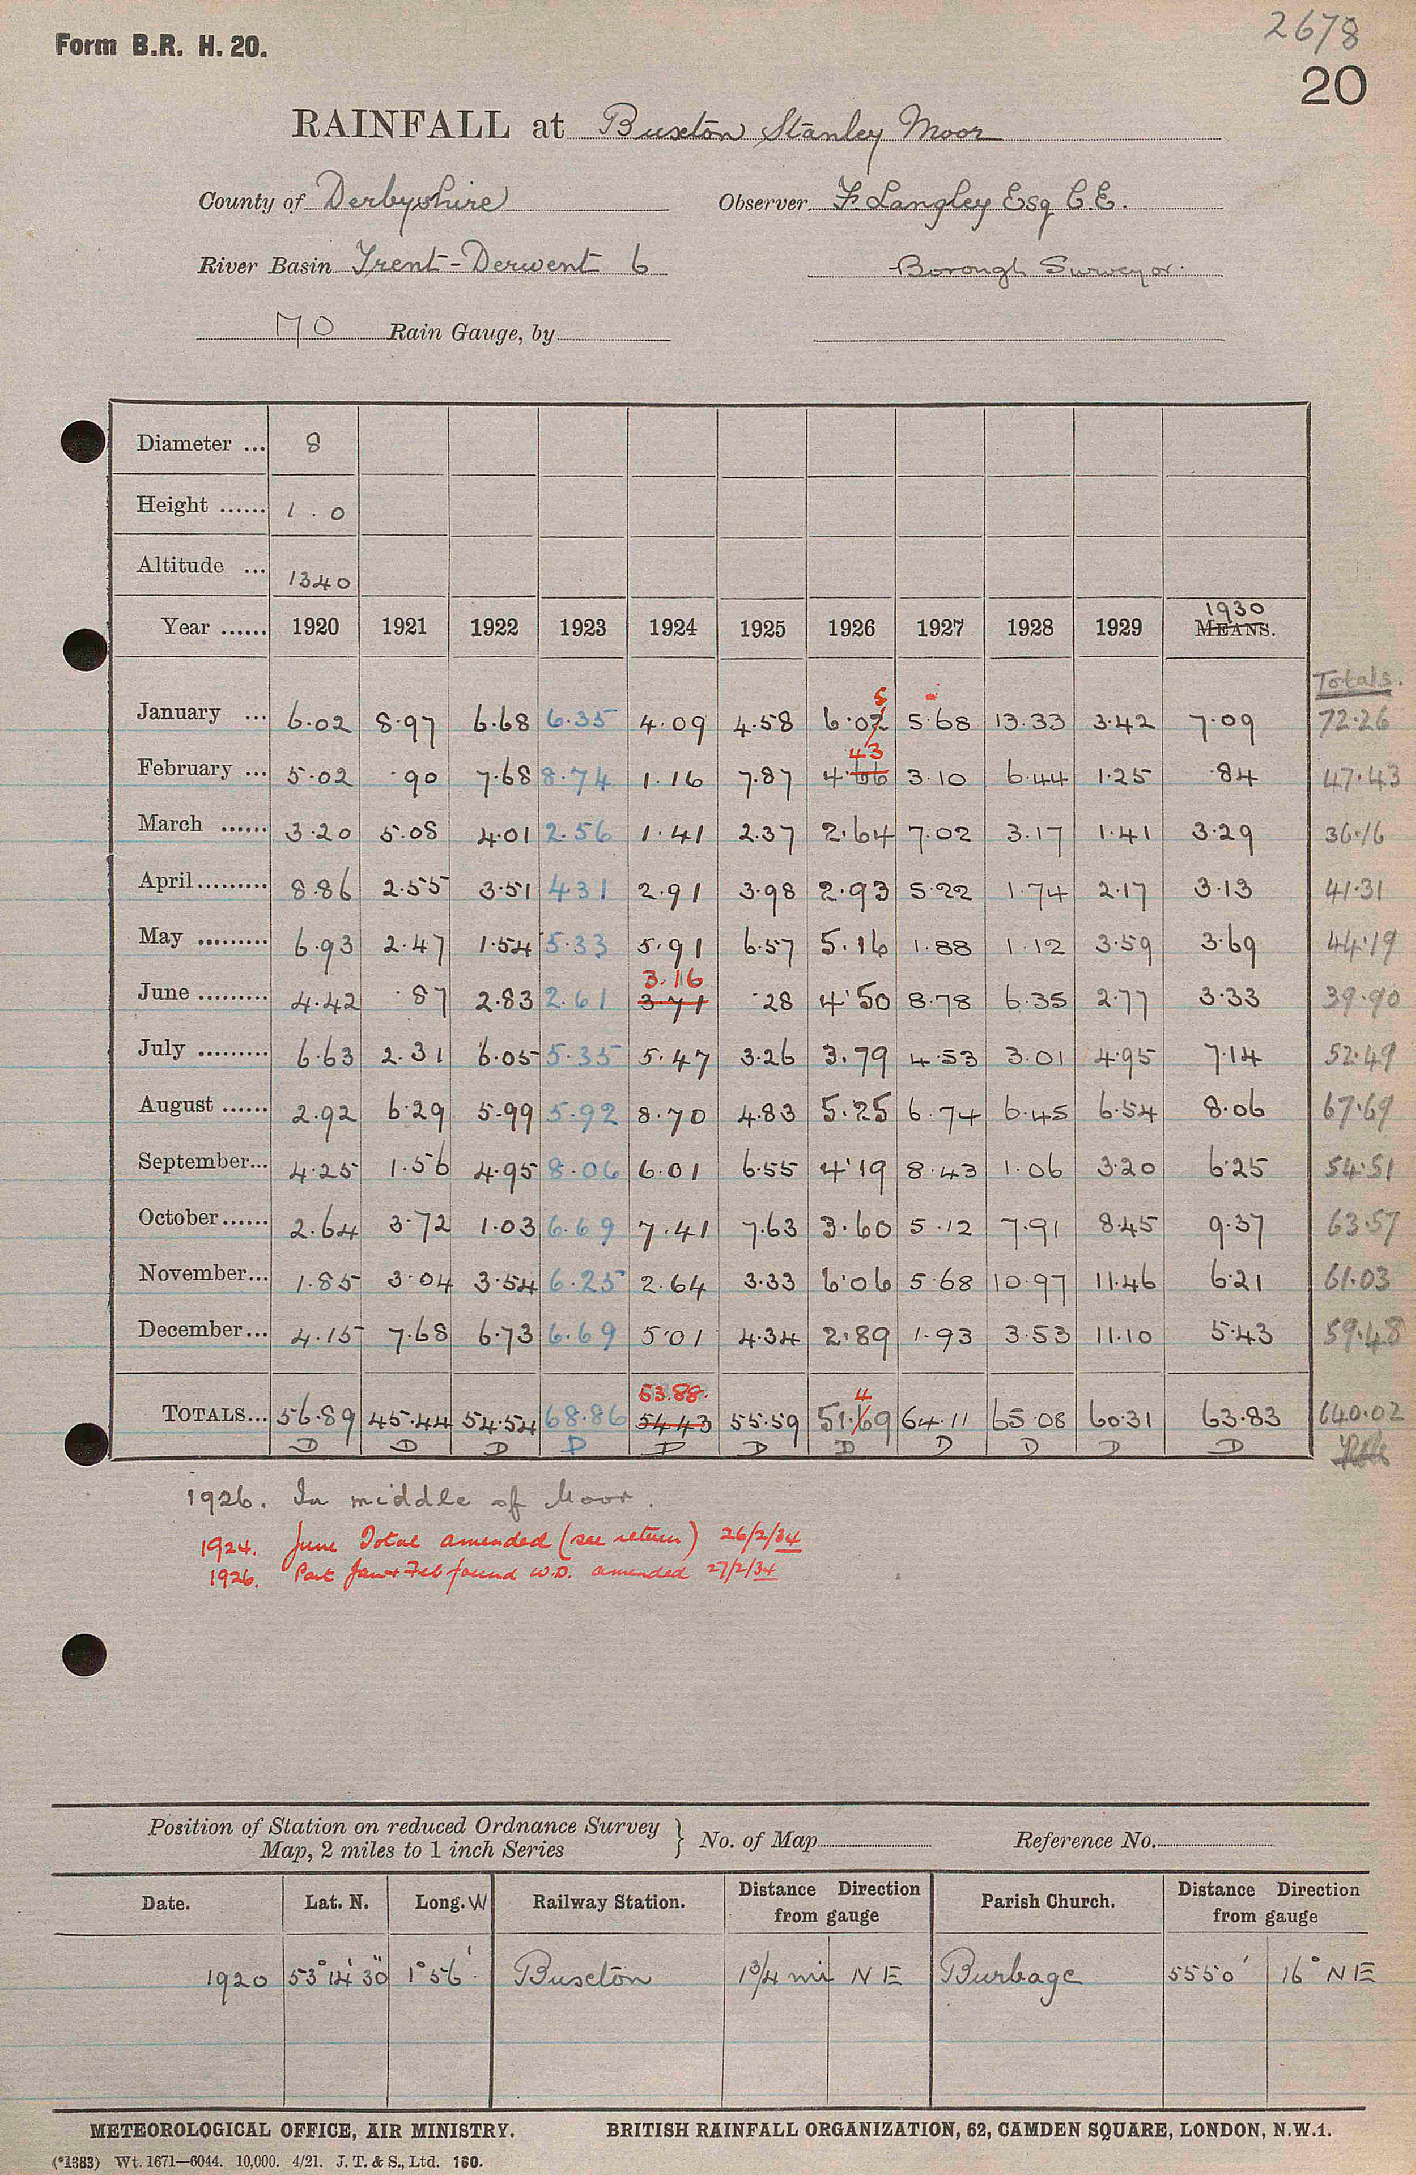 2678
Form B.R. H. 20.
20
RAINFALL at Buxton Stanley Moor
County of Derbyshire Observer F Langley Esq C.E.
River Basin Trent-Derwent 6 Borough Surveyor.
MO Rain Gauge, by
Diameter ... 8
Height ...... 1 . 0
Altitude ... 1340
1930
Year ...... 1920 1921 1922 1923 1924 1925 1926 1927 1928 1929 MEANS.
Totals.
5
January ... 6.02 8.97 6.68 6.35 4.09 4.58 6.02 5.68 13.33 3.42 7.09 72.26
43
February ... 5.02 .90 7.68 8.74 1.16 7.87 4.66 3.10 6.44 1.25 .84 47.43
March ...... 3.20 5.08 4.01 2.56 1.41 2.37 2.64 7.02 3.17 1.41 3.29 36.16
April ......... 8.86 2.55 3.51 4.31 2.91 3.98 2.93 5.22 1.74 2.17 3.13 41.31
May ......... 6.93 2.47 1.54 5.33 5.91 6.57 5.16 1.88 1.12 3.59 3.69 44.19
3.16
June ......... 4.42 .87 2.83 2.61 3.71 .28 4.50 8.78 6.35 2.77 3.33 39.90
July ......... 6.63 2.31 6.05 5.35 5.47 3.26 3.79 4.53 3.01 4.95 7.14 52.49
August ...... 2.92 6.29 5.99 5.92 8.70 4.83 5.25 6.74 6.45 6.54 8.06 67.69
September... 4.25 1.56 4.95 8.06 6.01 6.55 4.19 8.43 1.06 3.20 6.25 54.51
October...... 2.64 3.72 1.03 6.69 7.41 7.63 3.60 5.12 7.91 8.45 9.37 63.57
November... 1.85 3.04 3.54 6.25 2.64 3.33 6.06 5.68 10.97 11.46 6.21 61.03
December... 4.15 7.68 6.73 6.69 5.01 4.34 2.89 1.93 3.53 11.10 5.43 59.48
53.88. 4
TOTALS... 56.89 45.44 54.54 68.86 54.43 55.59 51.69 64.11 65.08 60.31 63.83 640.02
D D D D D D D D D D D
1926. In middle of Moor.
1924. June Total amended (see return) 26/2/34
1926. Part Jan & Feb found W.D. amended 27/2/34
Position of Station on reduced Ordnance Survey
Map, 2 miles to 1 inch Series } No. of Map Reference No.
Date. Lat. N. Long. W Railway Station. Distance Direction from gauge Parish Church. Distance Direction from gauge
1920 53° 14' 30" 1° 56' Buxton 1 3/4 mi NE Burbage 5550' 16° NE
METEOROLOGICAL OFFICE, AIR MINISTRY. BRITISH RAINFALL ORGANIZATION, 62, CAMDEN SQUARE, LONDON, N.W.1.
(*1383) Wt. 1671—6044. 10,000. 4/21. J. T. & S., Ltd. 160.